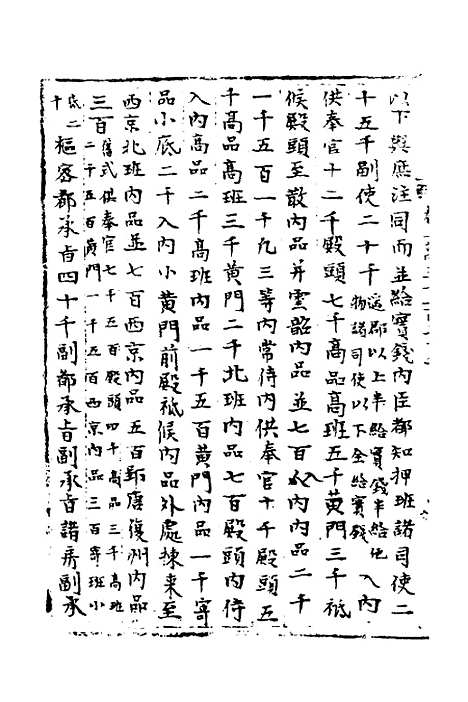 以下與應注同而並給實錢內臣都知押班諸司使二
十五千副使二十千遥郡以上半給實錢半給他物諸司使以下全給實錢入內
供奉官十二千殿頭七千高品高班五千黃門三千祗
候殿頭至散內品并雲韶內品並七百入內內品二千
一千五百一千凡三等內常侍內供奉官十千殿頭五
千高品高班三千黃門二千北班內品七百殿頭內侍
入內高品二千高班內品一千五百黃門內品一千寄
品小底二千入內小黃門前殿祗候內品外處揀来至
西京北班內品並七百西京內品五百郢唐復州內品
三百舊式供奉官七千五百殿頭四千高品三千高班二千五百黃門一千五百西京內品三百寄班小
底二十樞密都承旨四十千副都承旨副承旨諸房副承